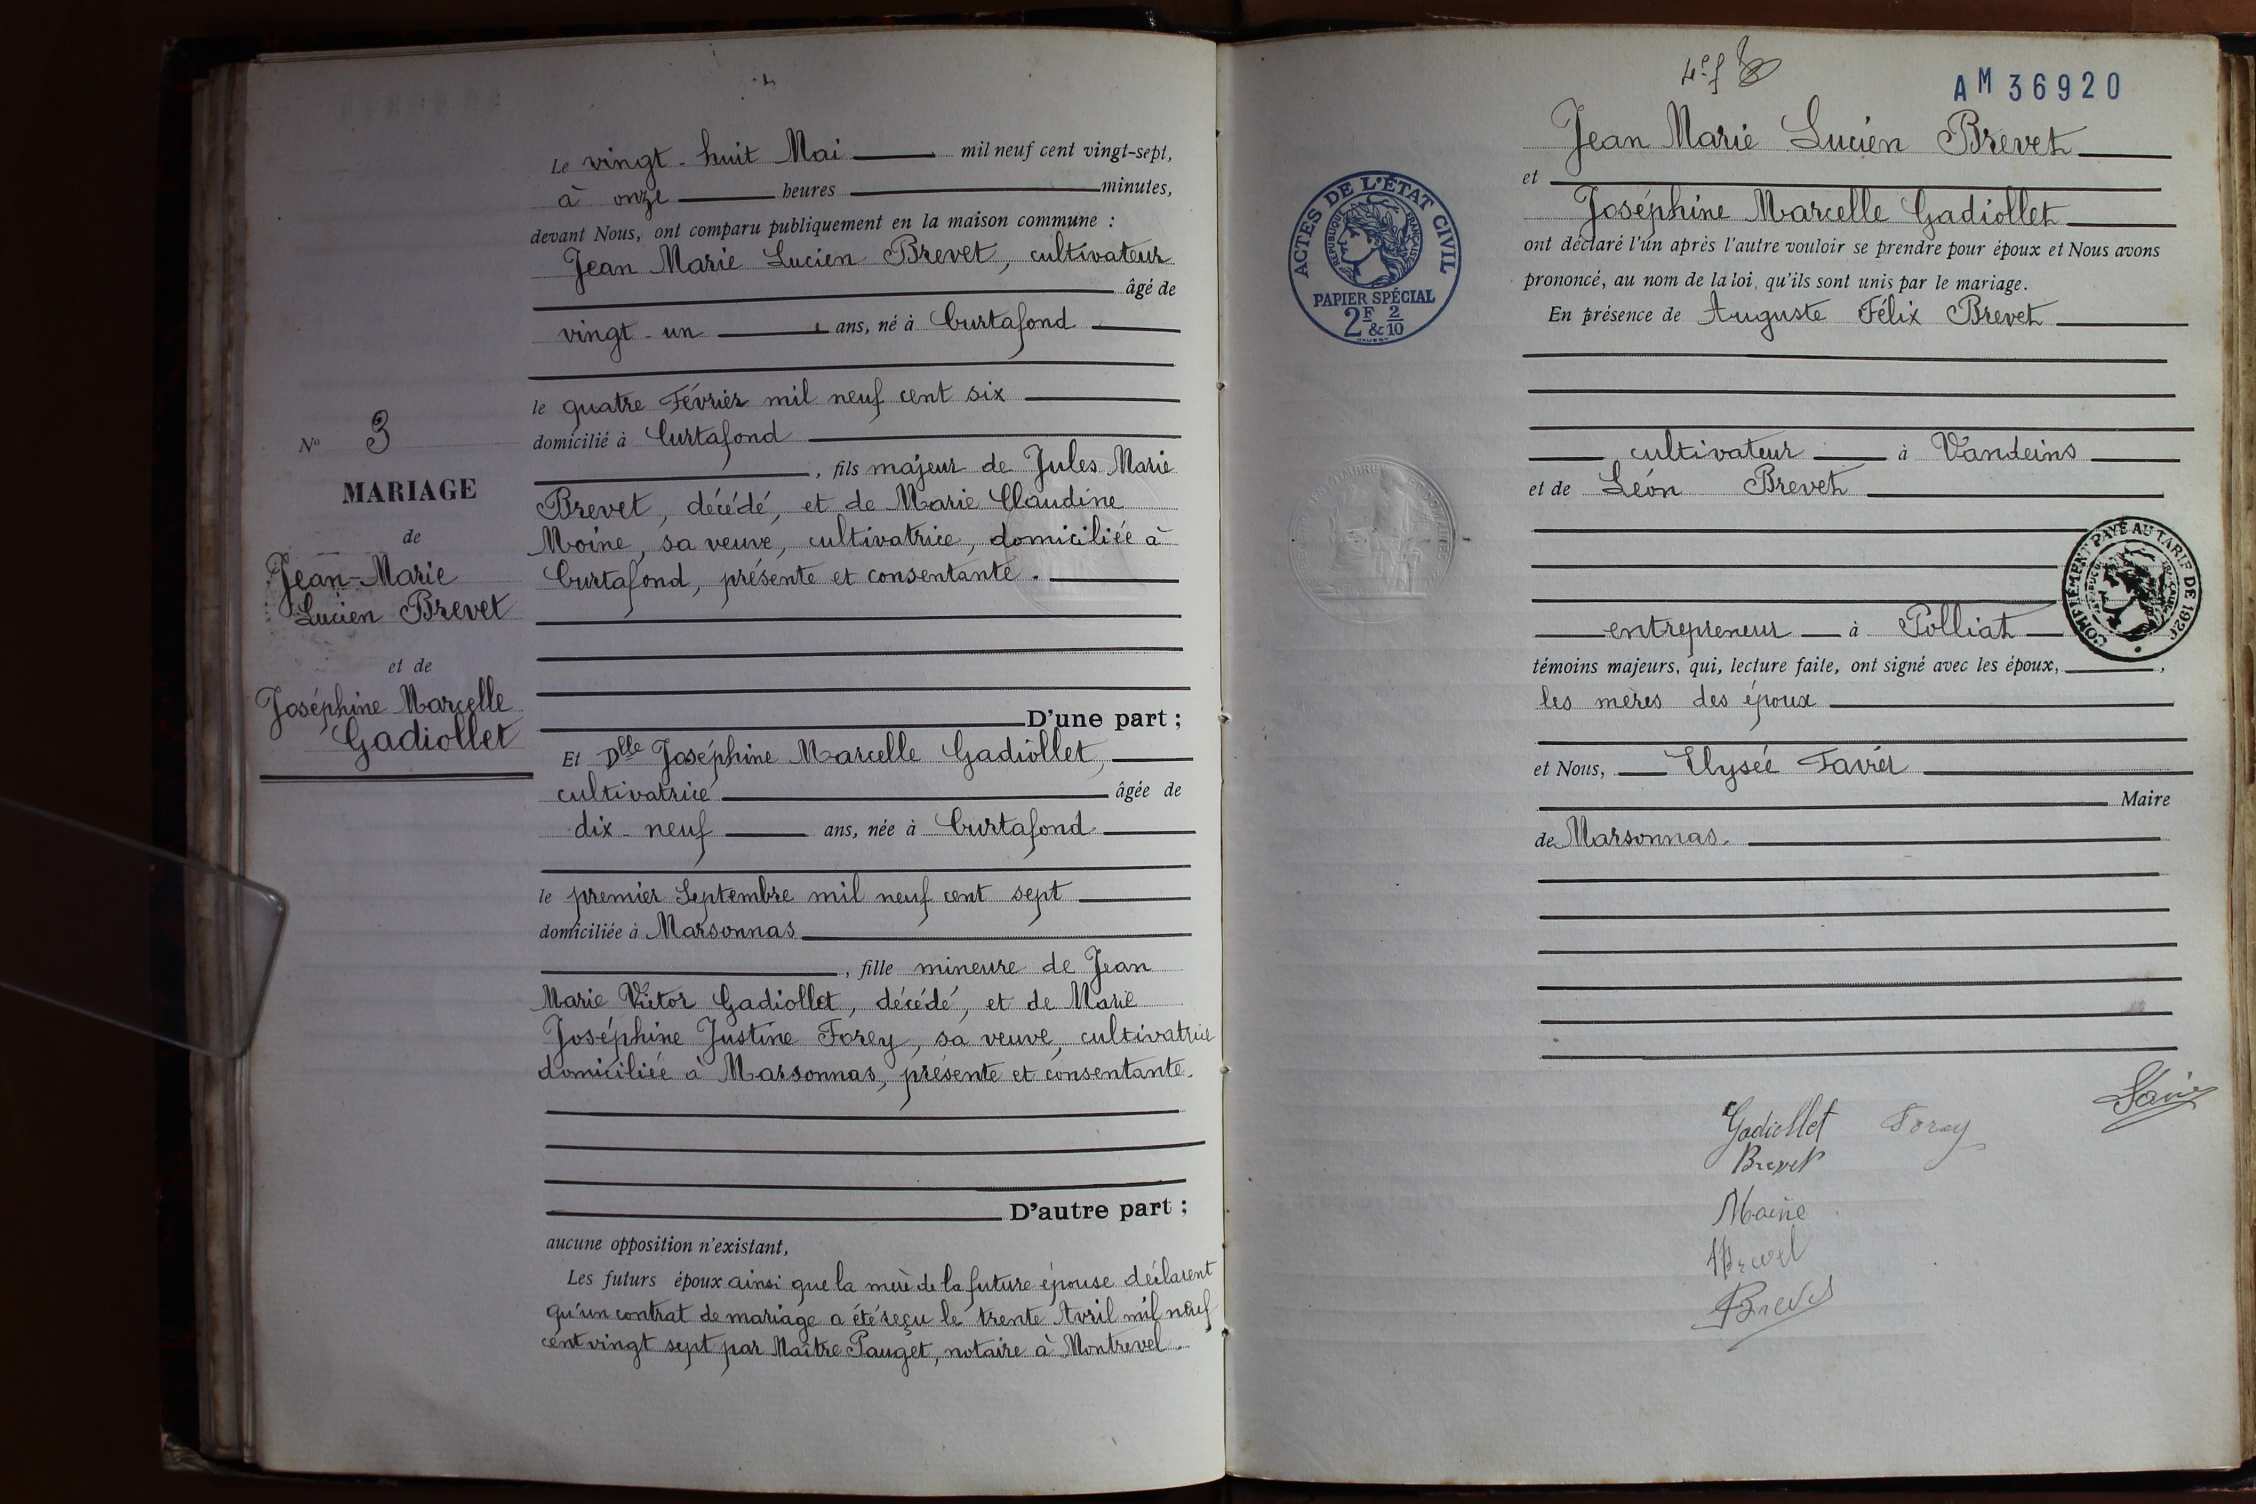 Le vingt-huit Mai mil neuf cent vingt-sept,
à onze heures minutes,
devant Nous, ont comparu publiquement en la maison commune :
Jean Marie Lucien Brevet, cultivateur
âgé de
vingt-un ans, né à Curtafond
le quatre Février mil neuf cent six
domicilié à Curtafond
, fils majeur de Jules Marie
Brevet, décédé, et de Marie Claudine
Moine, sa veuve, cultivatrice, domiciliée à
Curtafond, présente et consentante.
D'une part ;
Et Dlle Joséphine Marcelle Gadiollet,
cultivatrice âgée de
dix-neuf ans, née à Curtafond
le premier Septembre mil neuf cent sept
domiciliée à Marsonnas
, fille mineure de Jean
Marie Victor Gadiollet, décédé, et de Marie
Joséphine Justine Forey, sa veuve, cultivatrice
domiciliée à Marsonnas, présente et consentante.
D'autre part ;
aucune opposition n'existant,
Les futurs époux ainsi que la mère de la future épouse déclarent
qu'un contrat de mariage a été reçu le trente Avril mil neuf
cent vingt sept par Maître Pauget, notaire à Montrevel.
No 3
MARIAGE
de
Jean-Marie
Lucien Brevet
et de
Joséphine Marcelle
Gadiollet
AM 36920
Jean Marie Lucien Brevet
et
Joséphine Marcelle Gadiollet
ont déclaré l'un après l'autre vouloir se prendre pour époux et Nous avons
prononcé, au nom de la loi, qu'ils sont unis par le mariage.
En présence de Auguste Félix Brevet
cultivateur à Vandeins
et de Léon Brevet
entrepreneur à Polliat
témoins majeurs, qui, lecture faite, ont signé avec les époux, ,
les mères des époux
et Nous, Elysée Favier
Maire
de Marsonnas.
Gadiollet Forey
Brevet
Moine
Brevet
Brevet
ACTES DE L'ÉTAT CIVIL
RÉPUBLIQUE FRANÇAISE
PAPIER SPÉCIAL
2F & 2/10
COMPLÉMENT PAYÉ AU TARIF DE 1926